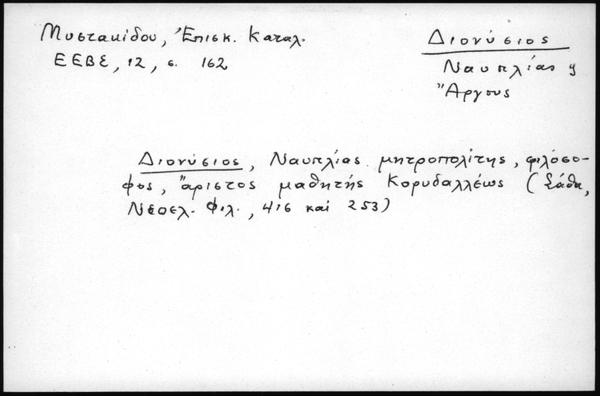 Μυστακίδου, Ἐπισκ. Καταλ.
ΕΕΒΣ, 12, σ. 162
Διονύσιος
Ναυπλίας ϗ
Ἄργους
Διονύσιος, Ναυπλίας μητροπολίτης, φιλόσο-
φος, ἄριστος μαθητής Κορυδαλλέως (Σάθα,
Νεοελ. Φιλ., 416 καί 253)